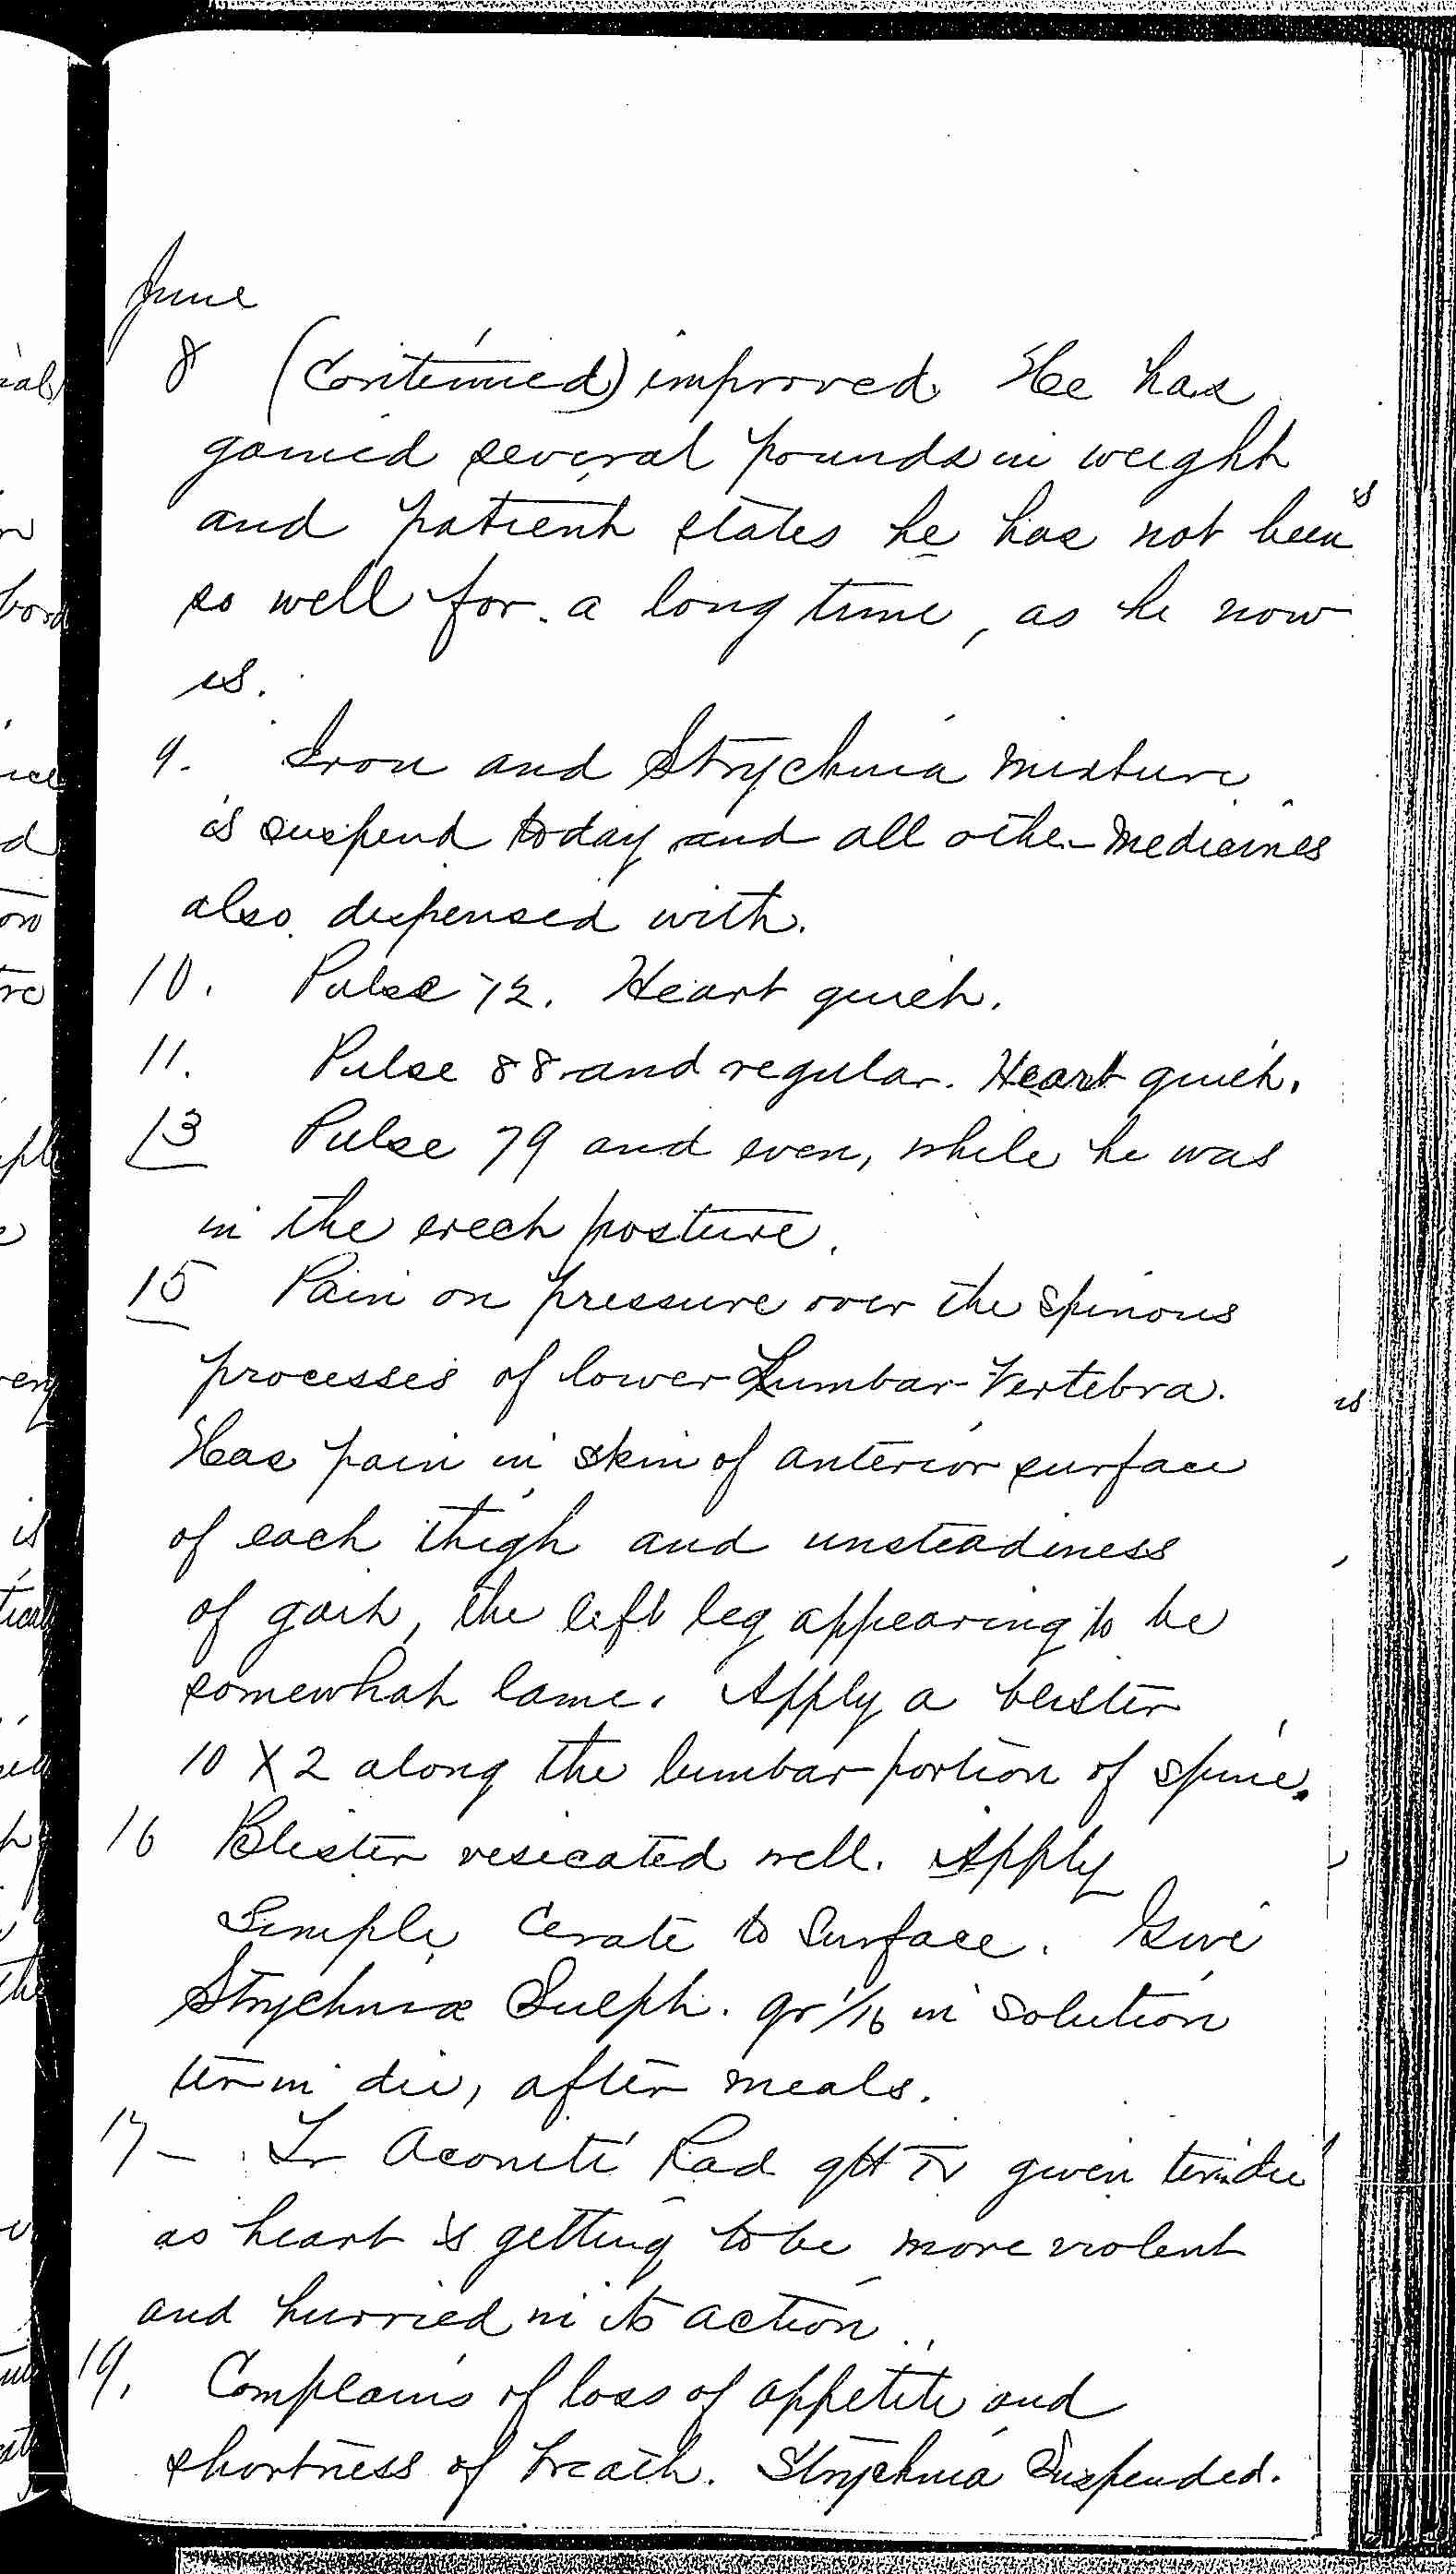 June
8 (Continued) improved He has
gained several pounds in weight
and patient states he has not been
so well for a long time, as he now
is.
9. Iron and Strychnia mixture
is suspend today and all other medicines
also dispensed with.
10. Pulse 72. Heart quiet.
11. Pulse 88 and regular. Heart quiet.
13 Pulse 79 and even, while he was
in the erect posture.
15 Pain on pressure over the Spinous
processes of lower Lumbar Vertebra.
Has pain in skin of anterior surface
of each thigh and unsteadiness
of gait, the left leg appearing to be
somewhat lame. Apply a blister
10 X 2 along the lumbar portion of spine.
16 Blister vesicated well. Apply
Simple Cerate to Surface. Give
Strychniae Sulph. gr 1/16 in Solution
ter in die, after meals.
17- Tr Aconiti Rad gtt IV given ter in die
as heart is getting to be more violent
and hurried in its action.
19. Complains of loss of appetite and
shortness of breath. Strychnia Suspended.